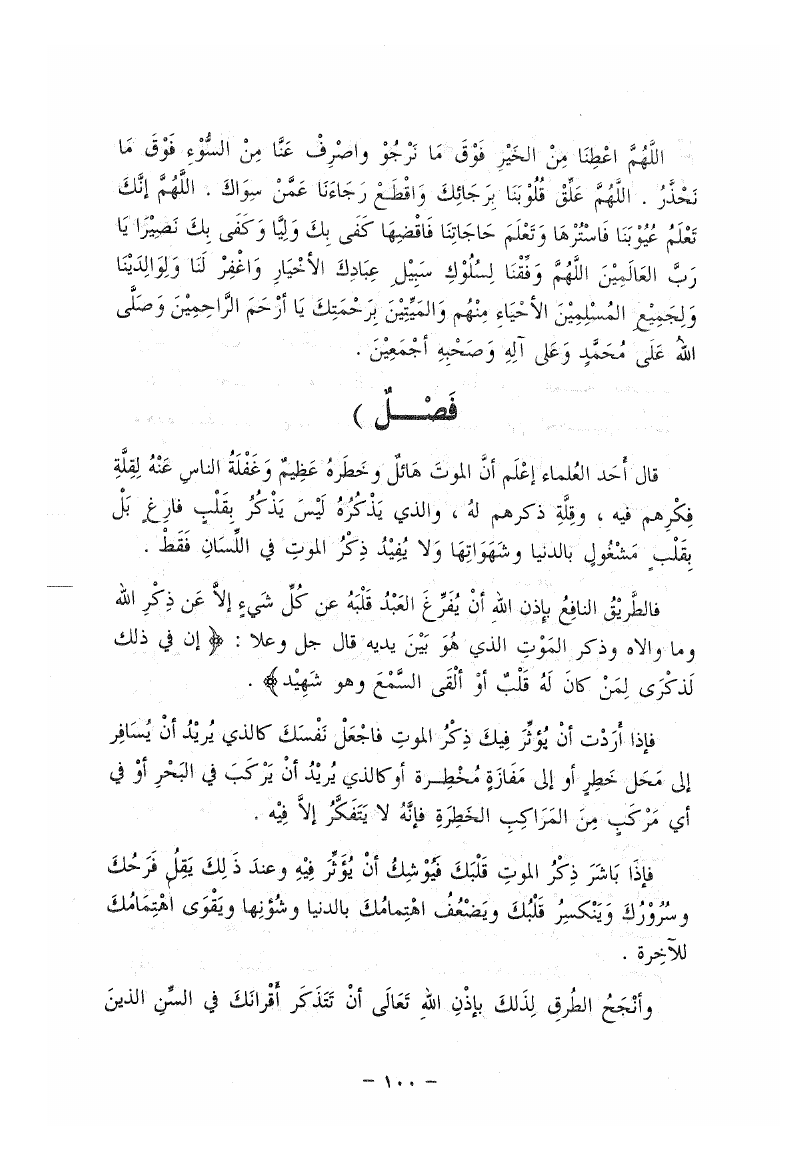 اللَّهُمَّ اعْطِنَا مِنَ الخَيْرِ فَوْقَ مَا نَرْجُوْ واصْرِفْ عَنَّا مِنْ السُّوْءِ فَوْقَ مَا
نَحْذَرُ . اللَّهُمَّ عَلِّقْ قُلُوْبَنَا بِرَجَائِكَ وَاقْطَعْ رَجَاءَنَا عَمَّنْ سِوَاكَ . اللَّهُمَّ إنَّكَ
تَعْلَمُ عُيُوْبَنَا فَاسْتُرْهَا وَتَعْلَمَ حَاجَاتِنَا فَاقْضِهَا كَفَى بِكَ وَلِيًّا وَكَفَى بِكَ نَصِيْرًا يَا
رَبَّ العَالَمِيْنَ اللَّهُمَّ وَفِّقْنَا لِسُلُوْكِ سَبِيْلِ عِبَادِكَ الأخْيَارِ وَاغْفِرْ لَنَا وَلِوَالِدَيْنَا
وَلِجَمِيْعِ المُسْلِمِيْنَ الأحْيَاءِ مِنْهُم وَالمَيِّتِيْنَ بِرَحْمَتِكَ يَا أرْحَمَ الرَّاحِمِيْنَ وَصَلَّى
اللهُ عَلَى مُحَمَّدٍ وَعَلى آلِهِ وَصَحْبِهِ أجْمَعِيْنَ .
فَصْـــلٌ )
قال أَحَد العُلماء إعْلَم أنَّ الموتَ هَائلٌ وخَطَرهُ عَظِيمٌ وَغَفْلَةُ الناسِ عَنْهُ لِقِلَّةِ
فِكْرِهم فيه ، وقِلَّةِ ذكرهم لهُ ، والذي يَذْكُرُهُ لَيْسَ يَذْكُرُ بِقَلْبٍ فارِغٍ بَلْ
بِقَلْبٍ مَشْغُولٍ بالدنيا وشَهَوَاتِهَا وَلا يُفِيْدُ ذِكْرُ الموتِ في اللِّسَانِ فَقَطْ .
فالطَّرِيْقُ النافِعُ بإذن اللهِ أنْ يُفَرِّغَ العَبْدُ قَلْبَهُ عن كُلِّ شَيءٍ إلاَّ عَن ذِكْرِ الله
وما والاه وذكر المَوْتِ الذي هُوَ بَيْنَ يديه قال جل وعلا : ﴿ إن في ذلك
لَذكْرَى لِمَنْ كانَ لَهُ قَلْبٌ أوْ ألْقَى السَّمْعَ وهو شَهِيْد ﴾ .
فإذا أَرَدْت أنْ يُؤثِّرَ فيكَ ذِكْرُ الموتِ فاجْعَلْ نَفْسَكَ كالذي يُرِيْدُ أنْ يُسَافِر
إلى مَحَل خَطِرٍ أو إلى مَفَازَةٍ مُخْطِـرة أوكالذي يُرِيْدُ أنْ يَرْكَبَ في البَحْرِ أوْ في
أي مَرْكَبٍ مِنَ المَرَاكِبِ الخَطِرَةِ فإنَّهُ لا يَتَفَكَّرُ إلاَّ فِيْه .
فإذَا بَاشَرَ ذِكْرُ الموتِ قَلْبَكَ فَيُوْشِكُ أنْ يُؤَثِّرَ فِيْهِ وعندَ ذَلِكَ يَقِلُ فَرَحُكَ
وسُرُوْرُكَ وَيَنْكسِرُ قَلْبُكَ ويَضْعُفُ اهْتِمامُكَ بالدنيا وشُؤنِها ويَقْوَى اهْتِمَامُكَ
للآخِرة .
وأنْجَحُ الطُرقِ لِذَلكَ بإذْنِ اللهِ تَعَالَى أنْ تَتَذكَر أقْرانَكَ في السنِ الذينَ
- ١٠٠ -